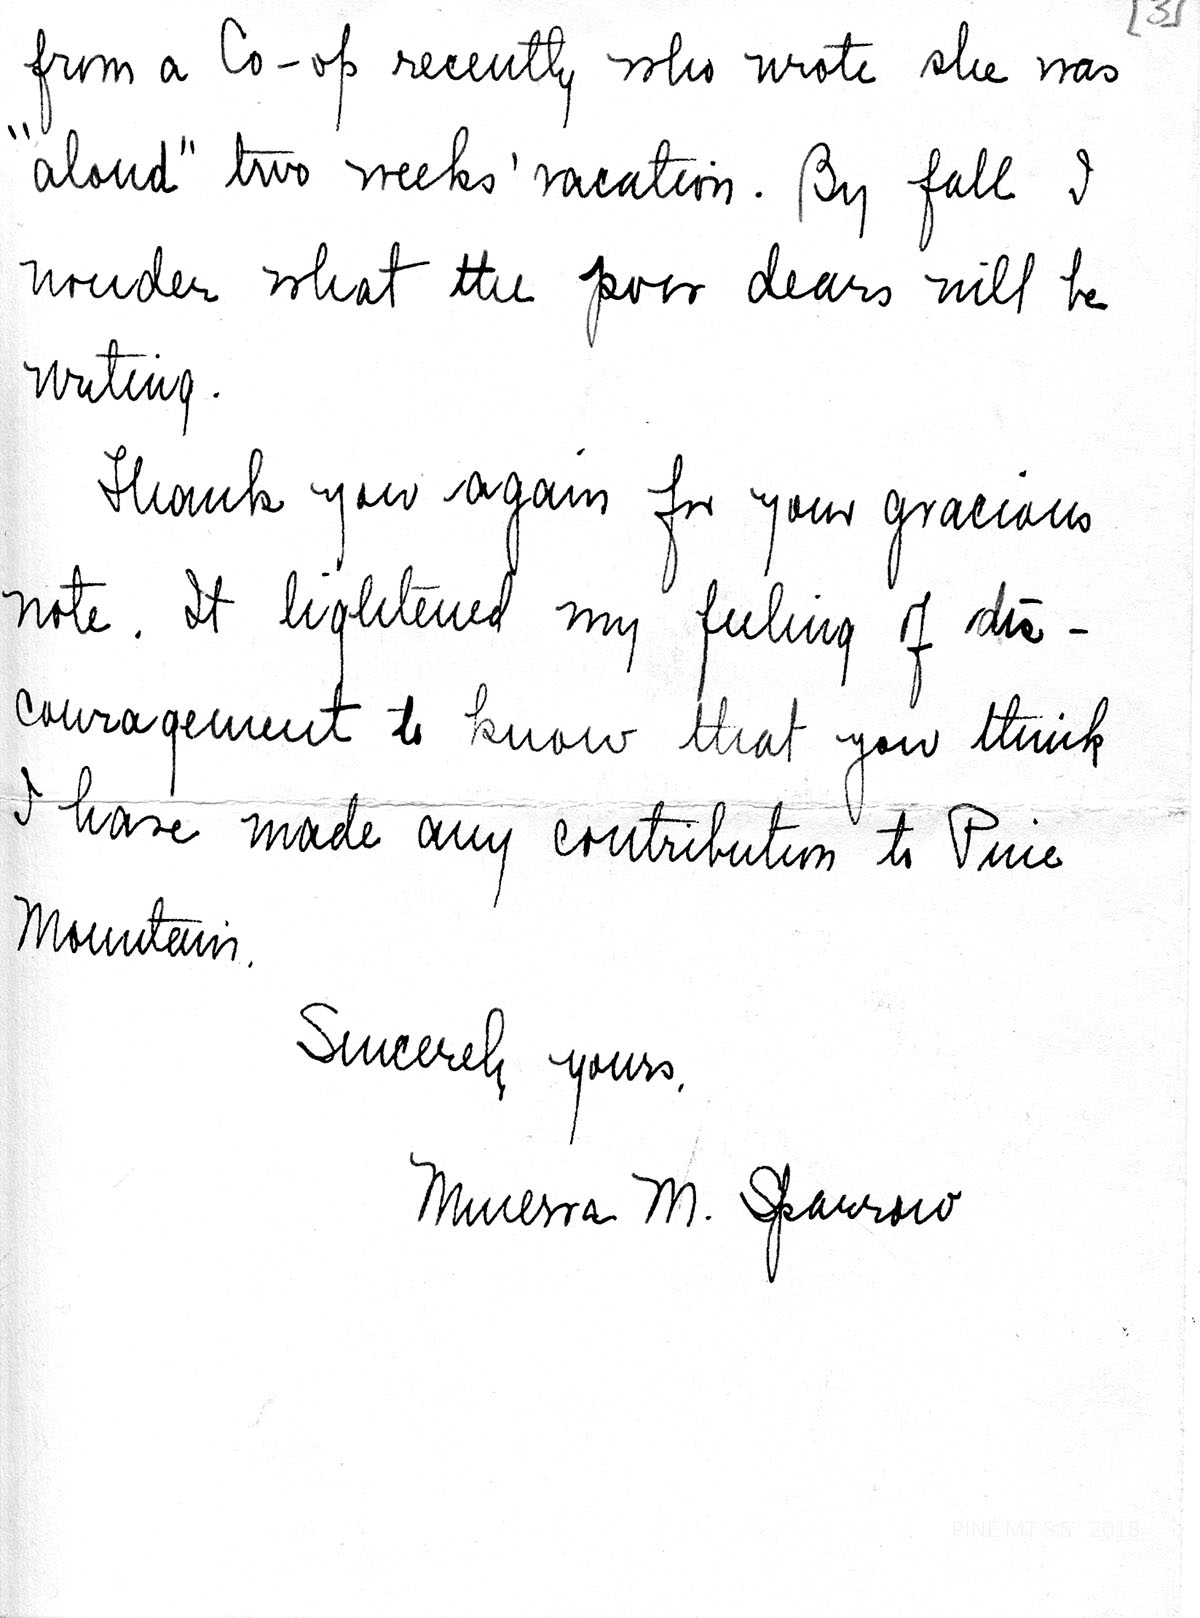 [3]
from a Co-op recently who wrote she was
"aloud" two weeks' vacation. By fall I
wonder what the poor dears will be
writing.
Thank you again for your gracious
note. It lightened my feeling of dis-
couragement to know that you think
I have made any contribution to Pine
Mountain.
Sincerely yours,
Minerva M. Sparrow
PINE MT S.S. 2018